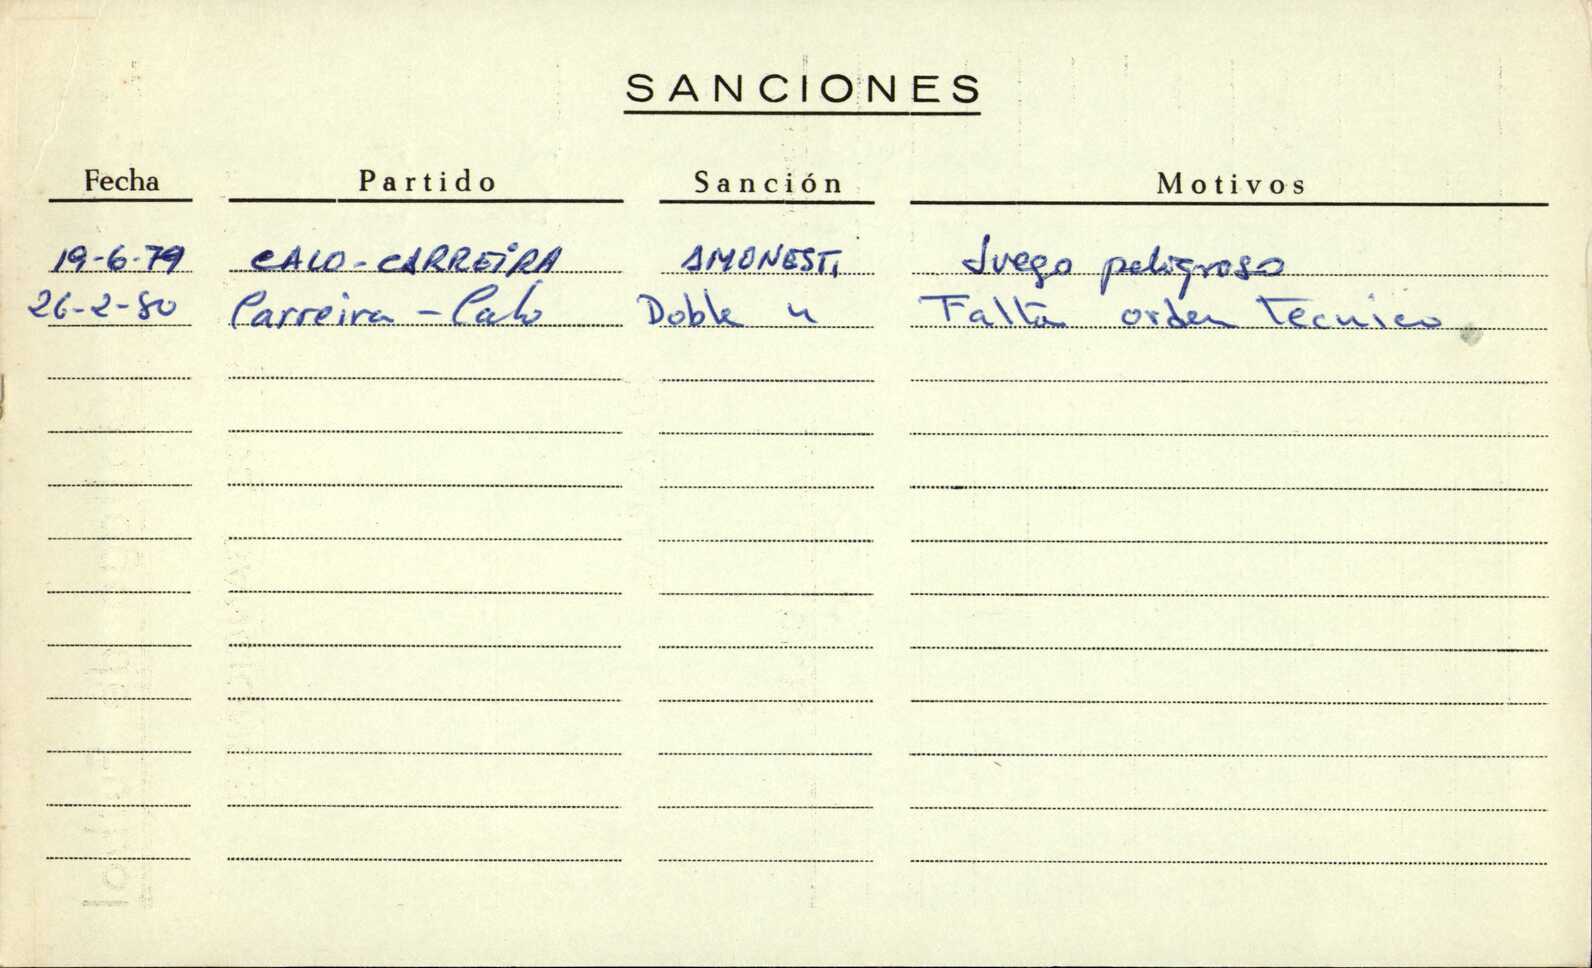 SANCIONES
Fecha Partido Sanción Motivos
19-6-79 CALO-CARREIRA AMONEST. Juego peligroso
26-2-80 Carreira - Calo Doble " Falta orden Tecnico